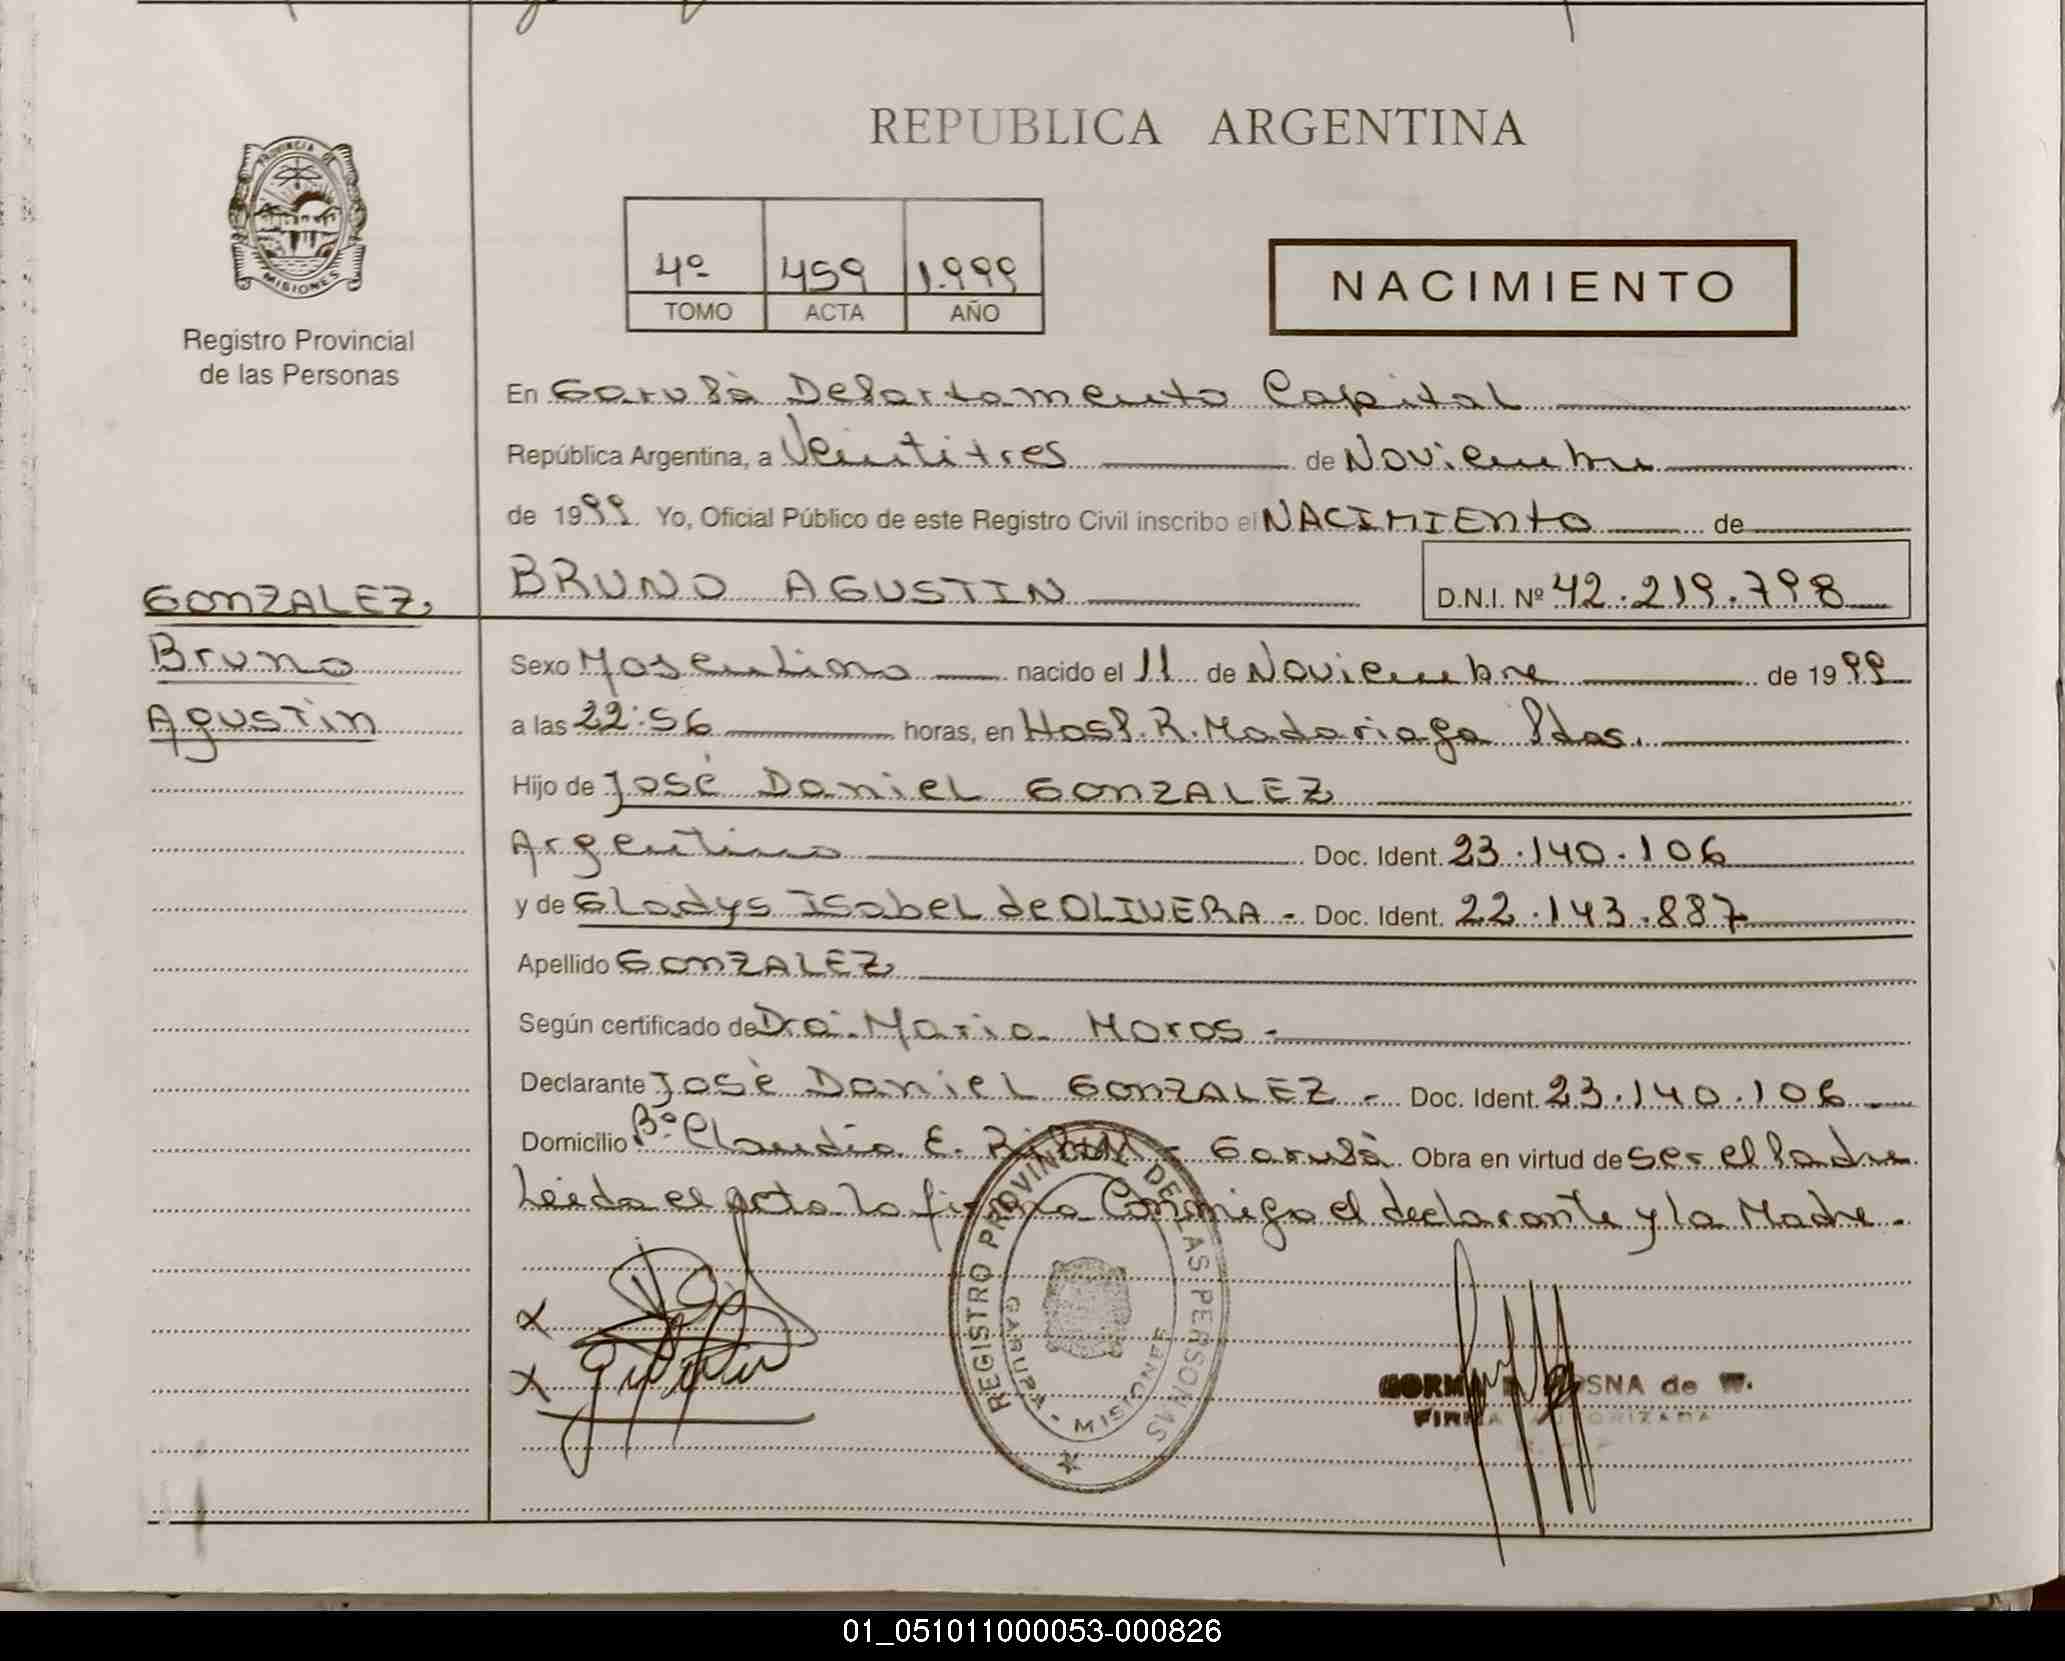 REPUBLICA ARGENTINA
PROVINCIA DE
MISIONES
Registro Provincial
de las Personas
4º 459 1.999
TOMO ACTA AÑO
NACIMIENTO
En Garupá Departamento Capital
República Argentina, a Veintitres de Noviembre
de 1999. Yo, Oficial Público de este Registro Civil inscribo el NACIMIENTO de
GONZALEZ,
Bruno
Agustin
BRUNO AGUSTIN
D.N.I. Nº 42.219.798
Sexo Masculino nacido el 11 de Noviembre de 1999
a las 22:56 horas, en Hosp. R. Madariaga Pdas.
Hijo de José Daniel GONZALEZ
Argentino Doc. Ident. 23.140.106
y de Gladys Isabel de OLIVERA - Doc. Ident. 22.143.887
Apellido GONZALEZ
Según certificado de Dra. Maria Moros -
Declarante José Daniel GONZALEZ - Doc. Ident. 23.140.106
Domicilio Bº Claudia E. - Garupá Obra en virtud de ser el Padre
Leida el acta la firma Conmigo el declarante y la Madre.
REGISTRO PROVINCIAL DE LAS PERSONAS
GARUPA - MISIONES
X
X
de W.
FIRMA AUTORIZADA
01_051011000053-000826